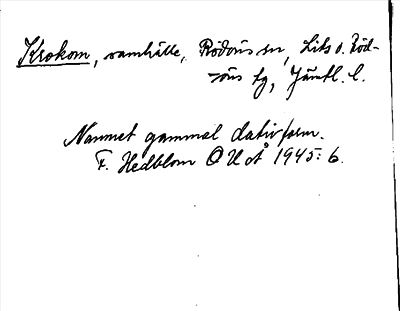 Krokom, samhälle, Rödöns sn, Lits o. Röd-
öns tg, Jämtl. l.
Namnet gammal dativform.
F. Hedblom OUÅ 1945: 6.